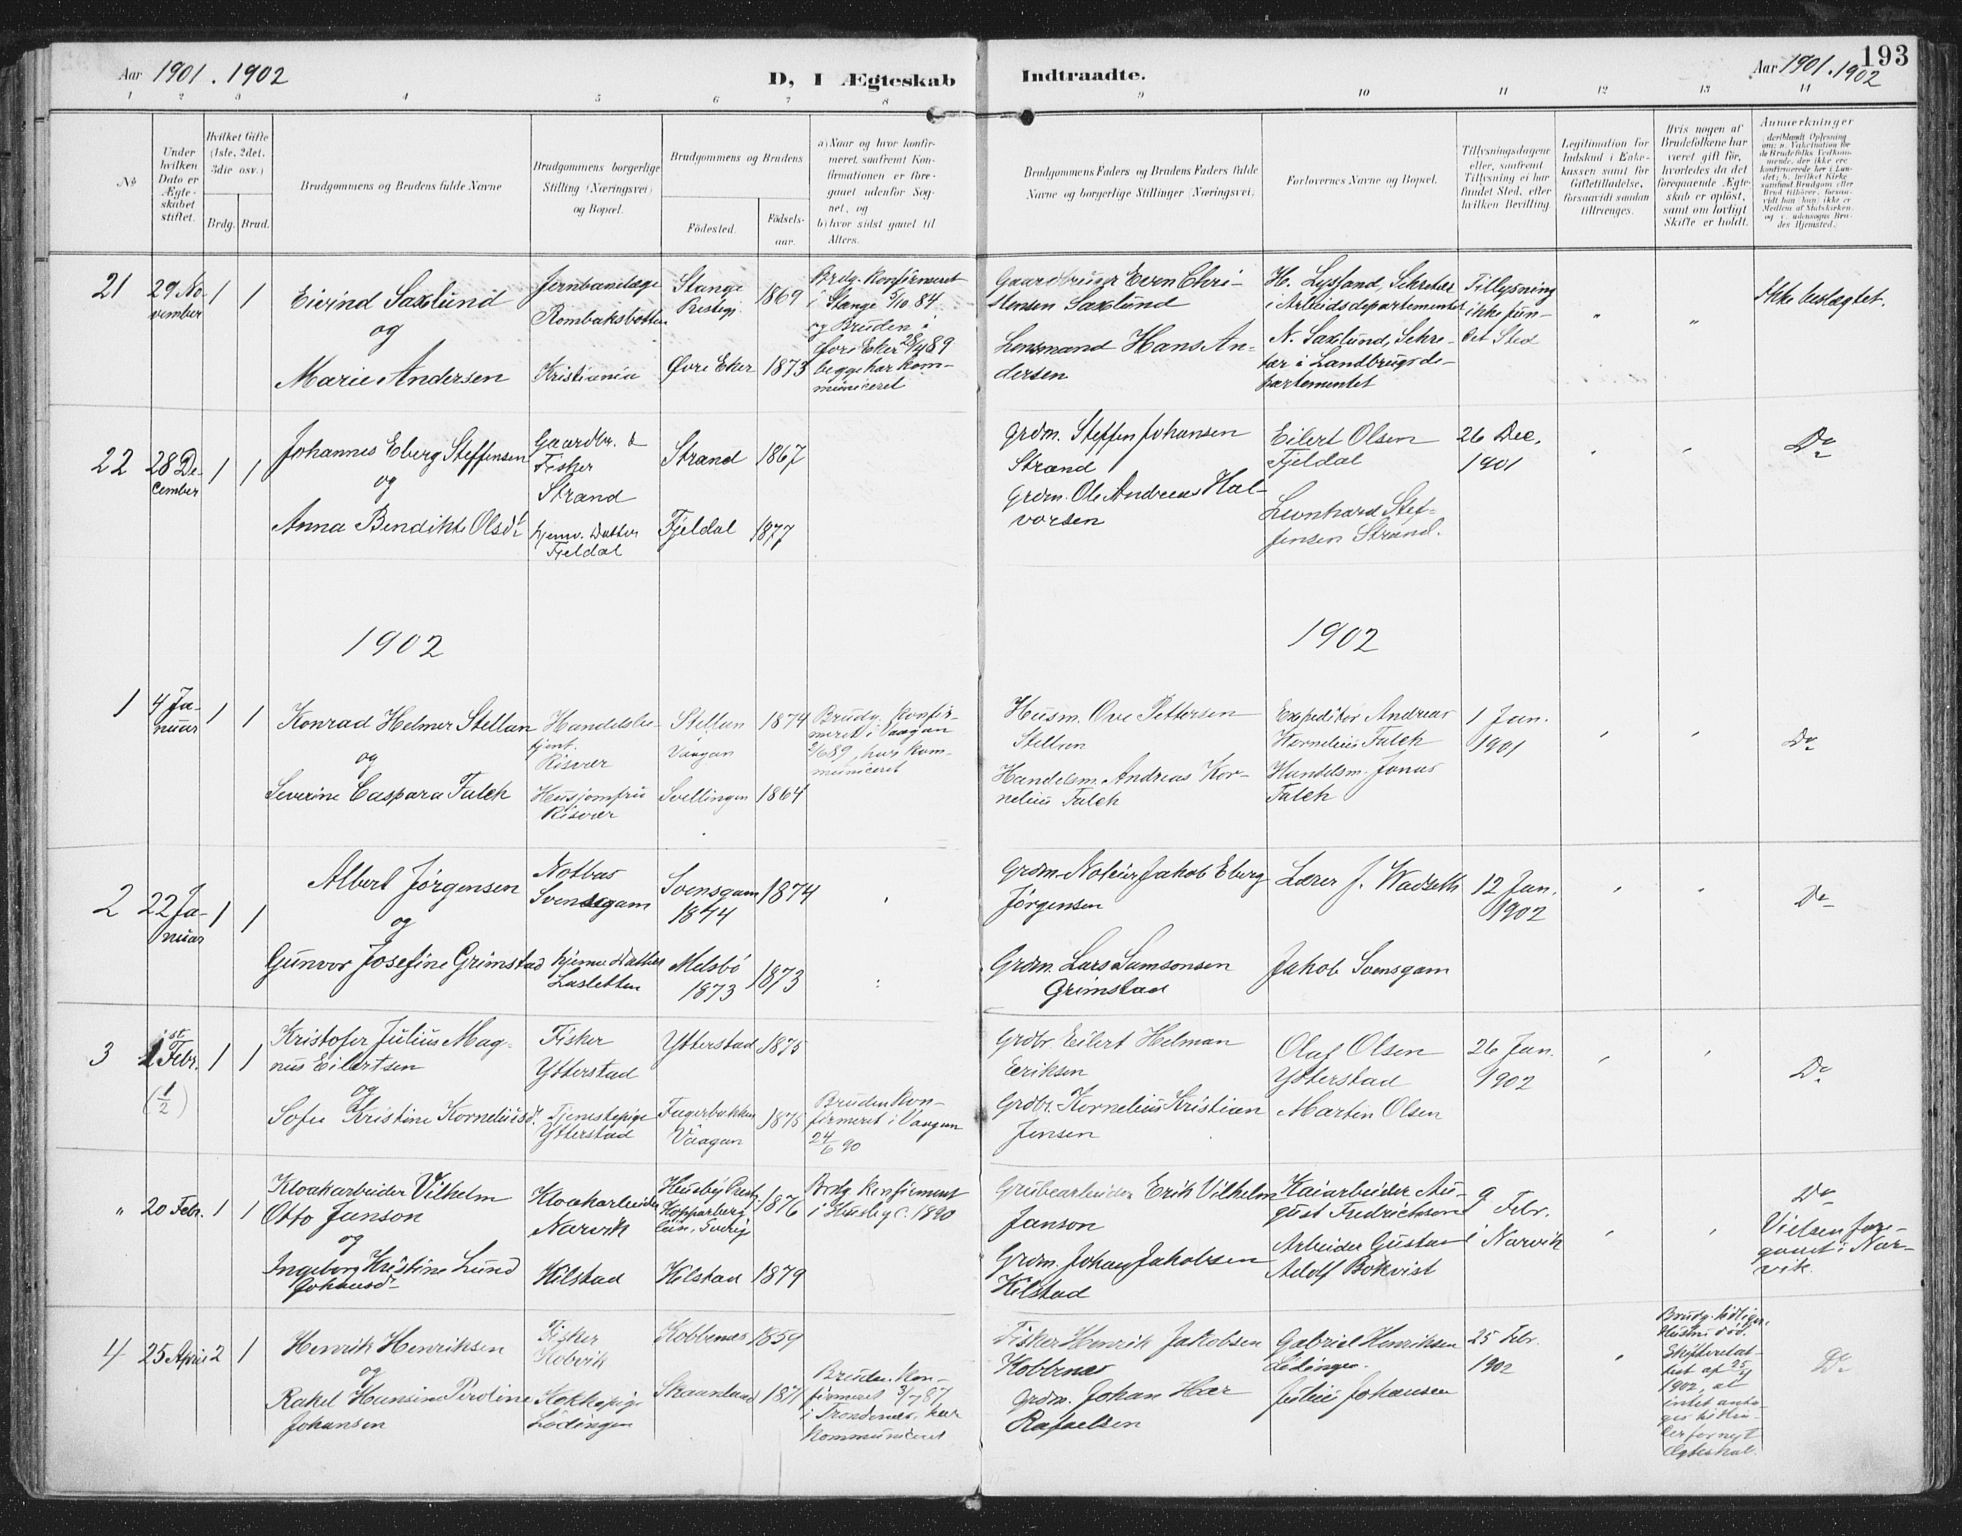 Aar 1901. 1902
D, I Ægteskab
Indtraadte.
Aar 1901.1902
193
1 2 3 4 5 6 7 8 9 10 11 12 13 14
No
Under hvilken Dato er Ægteskabet stiftet.
Hvilket Gifte (1ste, 2det, 3die osv.)
Brdg. Brud.
Brudgommens og Brudens fulde Navne
Brudgommens borgerlige Stilling (Næringsvei) og Bopæl.
Brudgommens og Brudens
Födested.
Födselsaar.
a) Naar og hvor konfirmeret samt naar Konfirmationen er foregaaet udenfor Sognet, og
b) hvor sidst gaaet til Alters.
Brudgommens Faders og Brudens Faders fulde Navne og borgerlige Stillinger (Næringsvei).
Forlovernes Navne og Bopæl.
Tillysningsdagene eller, saafremt Tillysning ei har fundet Sted, efter hvilken Bevilling.
Legitimation for Indskud i Enkekassen samt for Giftetilladelse, forsaavidt saadan tiltrænges.
Hvis nogen af Brudefolkene har været gift för, hvorledes da det foregaaende Ægteskab er oplöst, samt om lovligt Skifte er holdt.
Anmerkninger
21
29 November
1 1
Eivind Saxlund
og
Marie Andersen
Jernbanelæge
Rombaksbotten
Kristiania
Stange
Prestegj.
Øvre Eker
1869
1873
Brdg. konfirmeret
i Stange 5/10 84
og Bruden i
Øvre Eker 28/4 89
begge har kom-
municeret
Gaardbruger Even Chri-
stensen Saxlund
Lensmand Hans An-
dersen
H. Lysland, Sekretær
i Arbeidsdepartementet
N. Saxlund, Sekre-
tær i Landbrugsde-
partementet
Tillysning
ikke fun-
det Sted
" "
Ikke beslægtet.
22
28 De-
cember
1 1
Johannes Eberg Steffensen
og
Anna Bendikte Olsdt
Gaardbr. &
Fisker
Strand
hjemv. Datter
Fjeldal
Strand
Fjeldal
1867
1877
Grdm. Steffen Johansen
Strand
Grdm. Ole Andreas Hal-
vorsen
Eilert Olsen
Fjeldal
Leonhard Stef-
fensen Strand.
26 Dec.
1901
" "
Do
1902
1902
1
4 Ja-
nuar
1 1
Konrad Helmer Stellan
og
Severine Caspara Falch
Handelsbe-
tjent.
Risvær
Husjomfru
Risvær
Stellan
Vaagan
Svellingen
1874
1864
Brudg. konfir-
meret i Vaagan
2/6 89, har kom-
municeret
Husm. Ove Pettersen
Stellan
Handelsm. Andreas Kor-
nelius Falch
Expeditör Andreas
Kornelius Falch
Handelsm. Jonas
Falch
1 Jan.
1901
" "
Do
2
22 Ja-
nuar
1 1
Albert Jørgensen
og
Gunvor Josefine Grimstad
Notbas
Svensgam
hjemv. Datter
Lasletten
Svensgam
1844
Melsbö
1873
1874
1873
Grdm. Noteier Jakob Eberg
Jørgensen
Grdm. Lars Samsonsen
Grimstad
Lærer J. Wadseth
Jakob Svensgam
12 Jan.
1902
" "
Do
3
1st
Febr.
(1/2)
1 1
Kristofer Julius Mag-
nus Eilertsen
og
Sofie Kristine Korneliusdt.
Fisker
Ytterstad
Tjenestepige
Ytterstad
Ytterstad
Fagerbakken
Vaagan
1875
1875
Bruden kon-
firmeret i Vaagan
24/6 90
Grdbr Eilert Helman
Eriksen
Grdbr. Kornelius Kristian
Jensen
Olaf Olsen
Ytterstad
Martin Olsen
26 Jan.
1902
" "
Do
"
20 Febr.
1 1
Kloakarbeider Vilhelm
Otto Janson
og
Ingeborg Kristine Lund
Johansdt
Kloakarbeider
Narvik
Kilstad
Husby Prest.
Kopparberg
län, Sverig
Kilstad
1876
1879
Brdg konfirmeret
i Husby c. 1890
Grubearbeider Erik Vilhelm
Janson
Grdm. Johan Jakobsen
Kilstad
Kaiarbeider Au-
gust Fredrichsen
Arbeider Gustav
Adolf Bokvist
9 Febr.
i Narvik
" "
Do
Vielsen for-
gaaet i Nar-
vik.
4
25 April
2 1
Henrik Henriksen
og
Rakel Hansine Perdine
Johansen
Fisker
Kobvik
Kokkepige
Lødingen
Kobbenæs
Straumland
1859
1871
Bruden kon-
firmeret 3/7 87
i Trondenæs, har
kommuniceret
Fisker Henrik Jakobsen
Kobbenæs
Grdm. Johan Hær
Rafaelsen
Gabriel Henriksen
Lödingen
Julius Johansen
25 Febr.
1902
"
Brudg. tidligere
Hustru död.
Skifteretsat-
test af 25/4
1902, at
intet anta-
ges til Hin-
der for nyt
Ægteskab.
Do